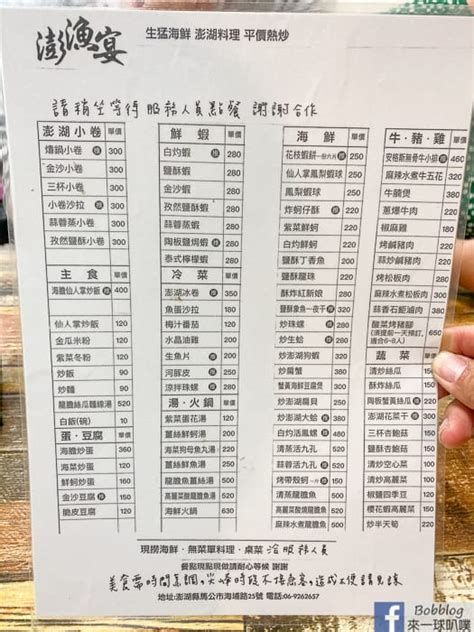 澎漁宴
生猛海鮮 澎湖料理 平價熱炒
請稍坐等待 服務人員點餐 謝謝合作
澎湖小卷 單價
鍋小卷 推 300
金沙小卷 300
三杯小卷 300
小卷沙拉 推 300
蒜蓉蒸小卷 300
孜然鹽酥小卷 300
主食 單價
海膽仙人掌炒飯 推 400
仙人掌炒飯 120
金瓜米粉 120
紫菜冬粉 120
炒飯 120
炒麵 120
龍膽絲瓜麵線湯 250
白飯(碗) 10
蛋・豆腐 單價
海膽炒蛋 360
海菜炒蛋 150
鮮蚵炒蛋 160
金沙豆腐 推 200
脆皮豆腐 150
鮮蝦 單價
白灼蝦 推 280
鹽酥蝦 280
金沙蝦 280
孜然鹽酥蝦 280
蒜蓉蒸蝦 280
陶板鹽焗蝦 推 280
泰式檸檬蝦 280
冷菜 單價
澎湖冰卷 推 350
魚蛋沙拉 180
梅汁番茄 120
水晶魚凍
生魚片 推 200
河豚皮 推 250
涼拌珠螺 推 180
湯・火鍋 單價
紫菜蛋花湯 200
薑絲鮮蚵湯 200
海菜狗母魚丸湯 200
薑絲鮮魚湯
高麗菜酸龍膽魚湯 500
海鮮火鍋 630
海鮮 單價
花枝蝦餅一份六片 推 250
仙人掌鳳梨蝦球 350
鳳梨蝦球 350
炸蚵仔酥 推 220
紫菜鮮蚵
白灼鮮蚵 推
鹽酥丁香魚
鹽酥龍珠
酥炸紅新娘 200
鹽酥象魚一夜干 推
炒珠螺 推
炒生蛤 推
炒澎湖狗蝦
炒扁蟹
蟹黃海鮮豆腐煲
炒澎湖絲瓜
炒澎湖大蛤 推
白灼活鳳螺 推
清蒸活九孔
蒜蓉活九孔 推
烤帶殼蚵一斤 推
清蒸龍膽魚
高麗菜酸龍膽魚
麻辣水煮龍膽魚
牛・豬・雞 單價
安格斯無骨牛小排 推 460
麻辣水煮牛五花
牛腩煲
蔥爆牛肉
椒麻雞
烤鹹豬肉
蒜炒鹹豬肉
烤松板肉
麻辣水煮松板肉
蒜香石鉅滷肉
酸菜烤豬腳 650
(須提前一天預訂，適合6-8人)
蔬菜 單價
清炒絲瓜
酥炸絲瓜
陶板蟹黃絲瓜 推
澎湖花菜干 推
三杯杏鮑菇
鹽酥杏鮑菇
清炒高麗菜
清炒空心菜
清炒水蓮
鹽酥四季豆
櫻花蝦高麗菜
炒半天筍
現撈海鮮・無菜單料理・桌菜 洽服務人員
餐點現點現做請耐心等候 謝謝
美食需時間烹調，尖峰時段不接急客，造成不便請見諒
地址:澎湖縣馬公市海埔路25號 電話:06-9262657
Bobblog
來一球叭噗